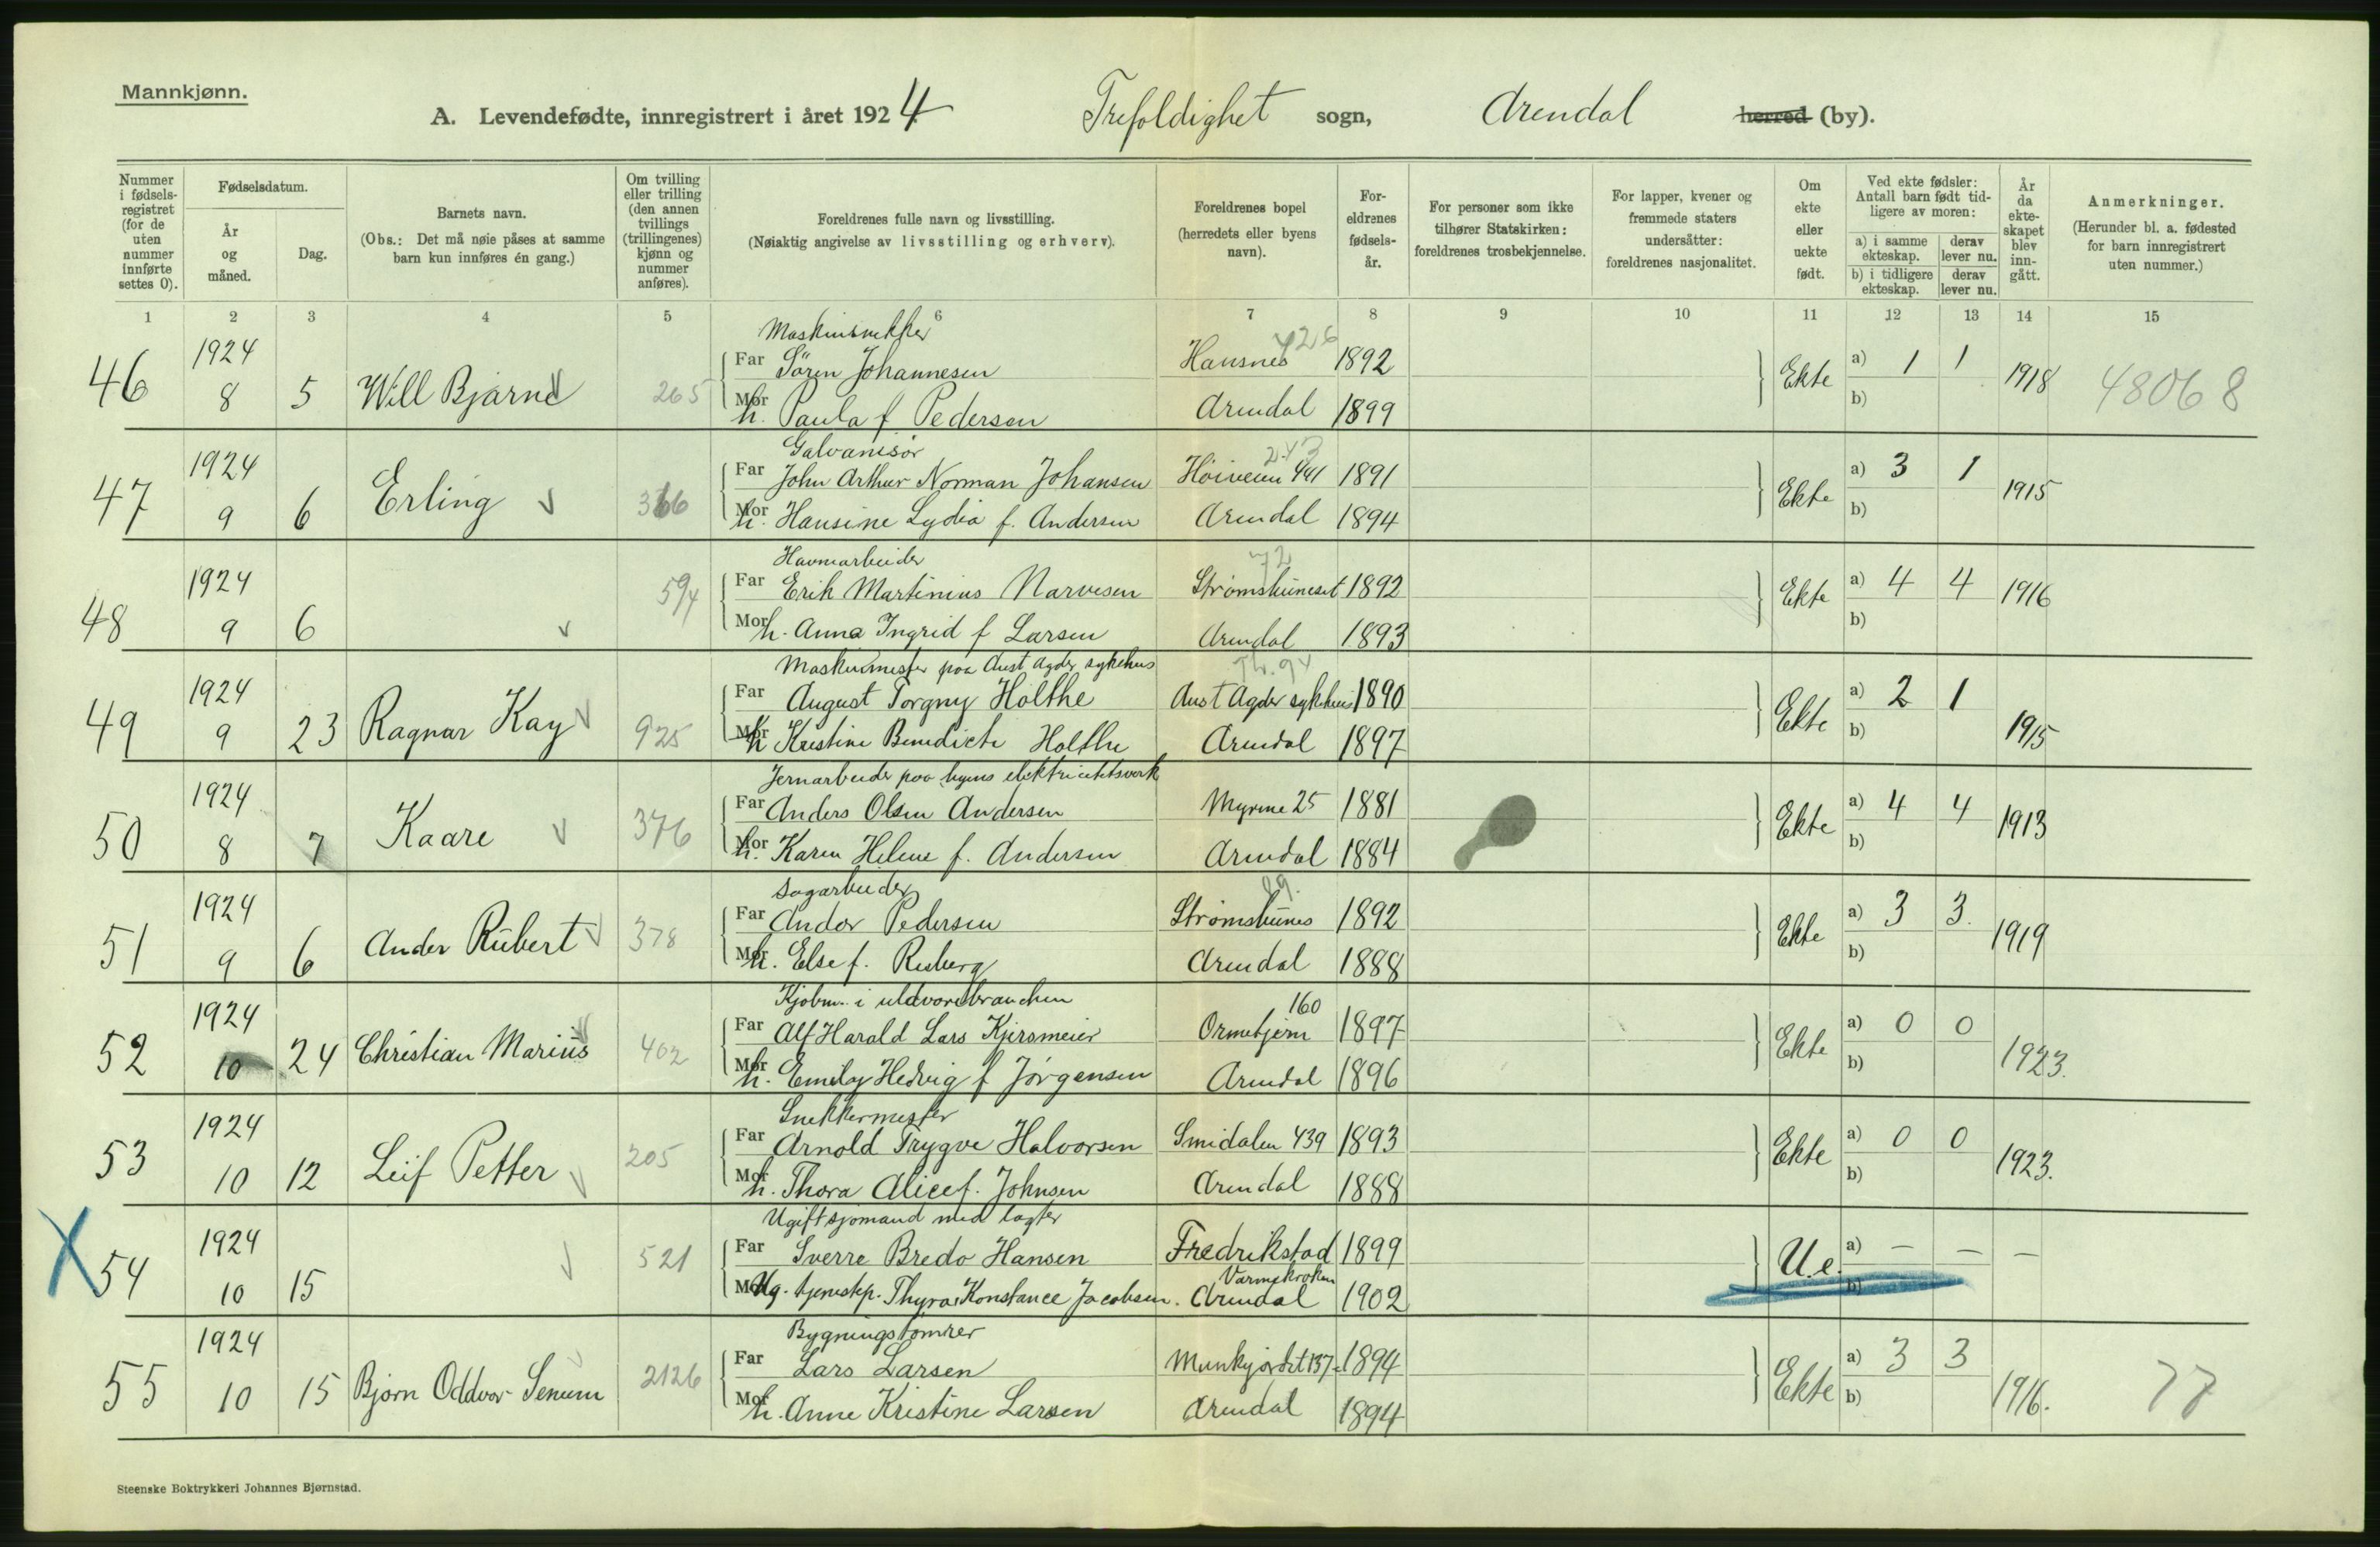 Mannkjønn.
A. Levendefødte, innregistrert i året 1924 Trefoldighet sogn, Arendal herred (by).
Nummer i fødsels-registret (for de uten nummer innførte settes 0).
Fødselsdatum.
År og måned.
Dag.
Barnets navn.
(Obs.: Det må nøie påses at samme barn kun innføres én gang.)
Om tvilling eller trilling (den annen tvillings (trillingenes) kjønn og nummer anføres).
Foreldrenes fulle navn og livsstilling.
(Nøiaktig angivelse av livsstilling og erhverv).
Foreldrenes bopel (herredets eller byens navn).
For-eldrenes fødsels-år.
For personer som ikke tilhører Statskirken: foreldrenes trosbekjennelse.
For lapper, kvener og fremmede staters undersåtter: foreldrenes nasjonalitet.
Om ekte eller uekte født.
Ved ekte fødsler: Antall barn født tid-ligere av moren:
a) i samme ekteskap.
derav lever nu.
b) i tidligere ekteskap.
derav lever nu.
År da ekte-skapet blev inn-gått.
Anmerkninger.
(Herunder bl. a. fødested for barn innregistrert uten nummer.)
1 2 3 4 5 6 7 8 9 10 11 12 13 14 15
Maskinsnekker
46 1924 Far Sören Johannesen Hausnes 426 1892 Ekte a) 1 1 1918 48068
8 5 Will Bjarne 265 Mor h. Paula f Pedersen Arendal 1899 b)
Galvanisør
47 1924 Far John Arthur Norman Johansen Høiveien 441 243 1891 Ekte a) 3 1 1915
9 6 Erling 366 Mor h. Hansine Lydia f. Andersen Arendal 1894 b)
Havnearbeider
48 1924 594 Far Erik Martinius Narvesen 72 1892 Ekte a) 4 4 1916
9 6 Mor h. Anna Ingrid f Larsen Arendal 1893 b)
Maskinmester paa Aust Agder sykehus
49 1924 Far August Torgny Holthe Aust Agder sykehus 1890 Ekte a) 2 1 1915
9 23 Ragnar Kay 925 Mor h Kristine Benedicte Holthe Arendal 1897 b)
Jernarbeider paa byens elektricitetsverk
50 1924 Far Anders Olsen Andersen Myrene 25 1881 Ekte a) 4 4 1913
8 7 Kaare 376 Mor h. Karen Helene f. Andersen Arendal 1884 b)
Sagarbeider
51 1924 Far Andor Pedersen Strømsbunes 89. 1892 Ekte a) 3 3. 1919
9 6 Ander Rubert 378 Mor h. Else f. Risberg Arendal 1888 b)
Kjøbm. i uldvarebranchen
52 1924 Far Alf Harald Lars Kjersmeier 160 1897 Ekte a) 0 0 1923.
10 24 Christian Marius 402 Mor h. Emily Hedvig f Jørgensen Arendal 1896 b)
Snekkermester
53 1924 Far Arnold Trygve Halvorsen Smidalen 439 1893 Ekte a) 0 0 1923.
10 12 Leif Petter 205 Mor h. Thora Alice f. Johnsen Arendal 1888 b)
Ugift sjømand med lagter
X 54 1924 521 Far Sverre Bredo Hansen Fredrikstad 1899 U.e. a) — — —
10 15 Mor Ug. tjenestep. Thyra Konstance Jacobsen. Varmekroken Arendal 1902 b)
Bygningstømrer
55 1924 Far Lars Larsen Munkejordet 137 1894 Ekte a) 3 3 1916. 77
10 15 Bjørn Oddvar Senum 2126 Mor h. Anne Kristine Larsen Arendal 1894 b)
Steenske Boktrykkeri Johannes Bjørnstad.